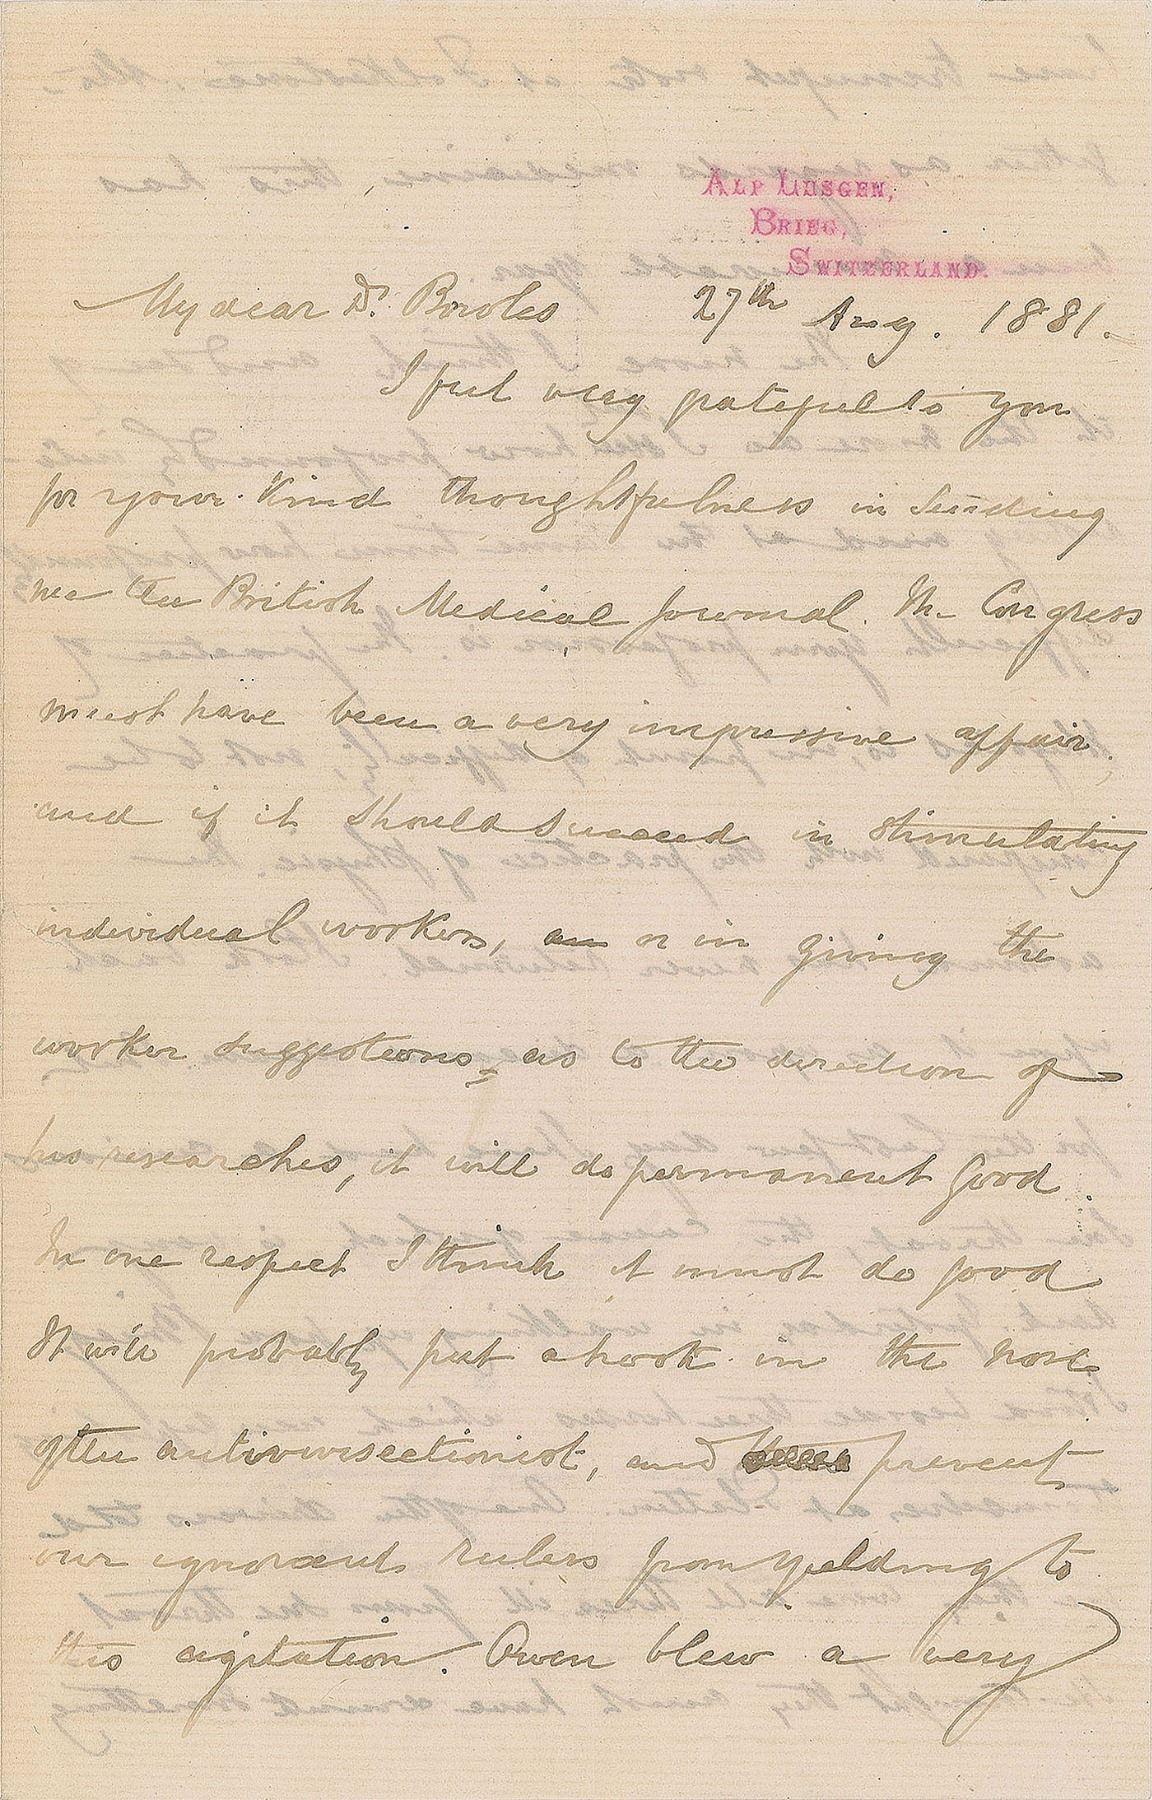 ALP LUSGEN,
BRIEG,
SWITZERLAND.
My dear Dr. Bowles 27th Aug. 1881.
I feel very grateful to you
for your kind thoughtfulness in sending
me the British Medical Journal. The Congress
must have been a very impressive affair,
and if it should succeed in stimulating
individual workers, or in giving the
worker suggestions as to the direction of
his researches, it will do permanent good.
In one respect I think it must do good
It will probably put a hook in the nose
of the antivivisectionist, and prevent
our ignorant rulers from yielding to
this agitation. Owen blew a very